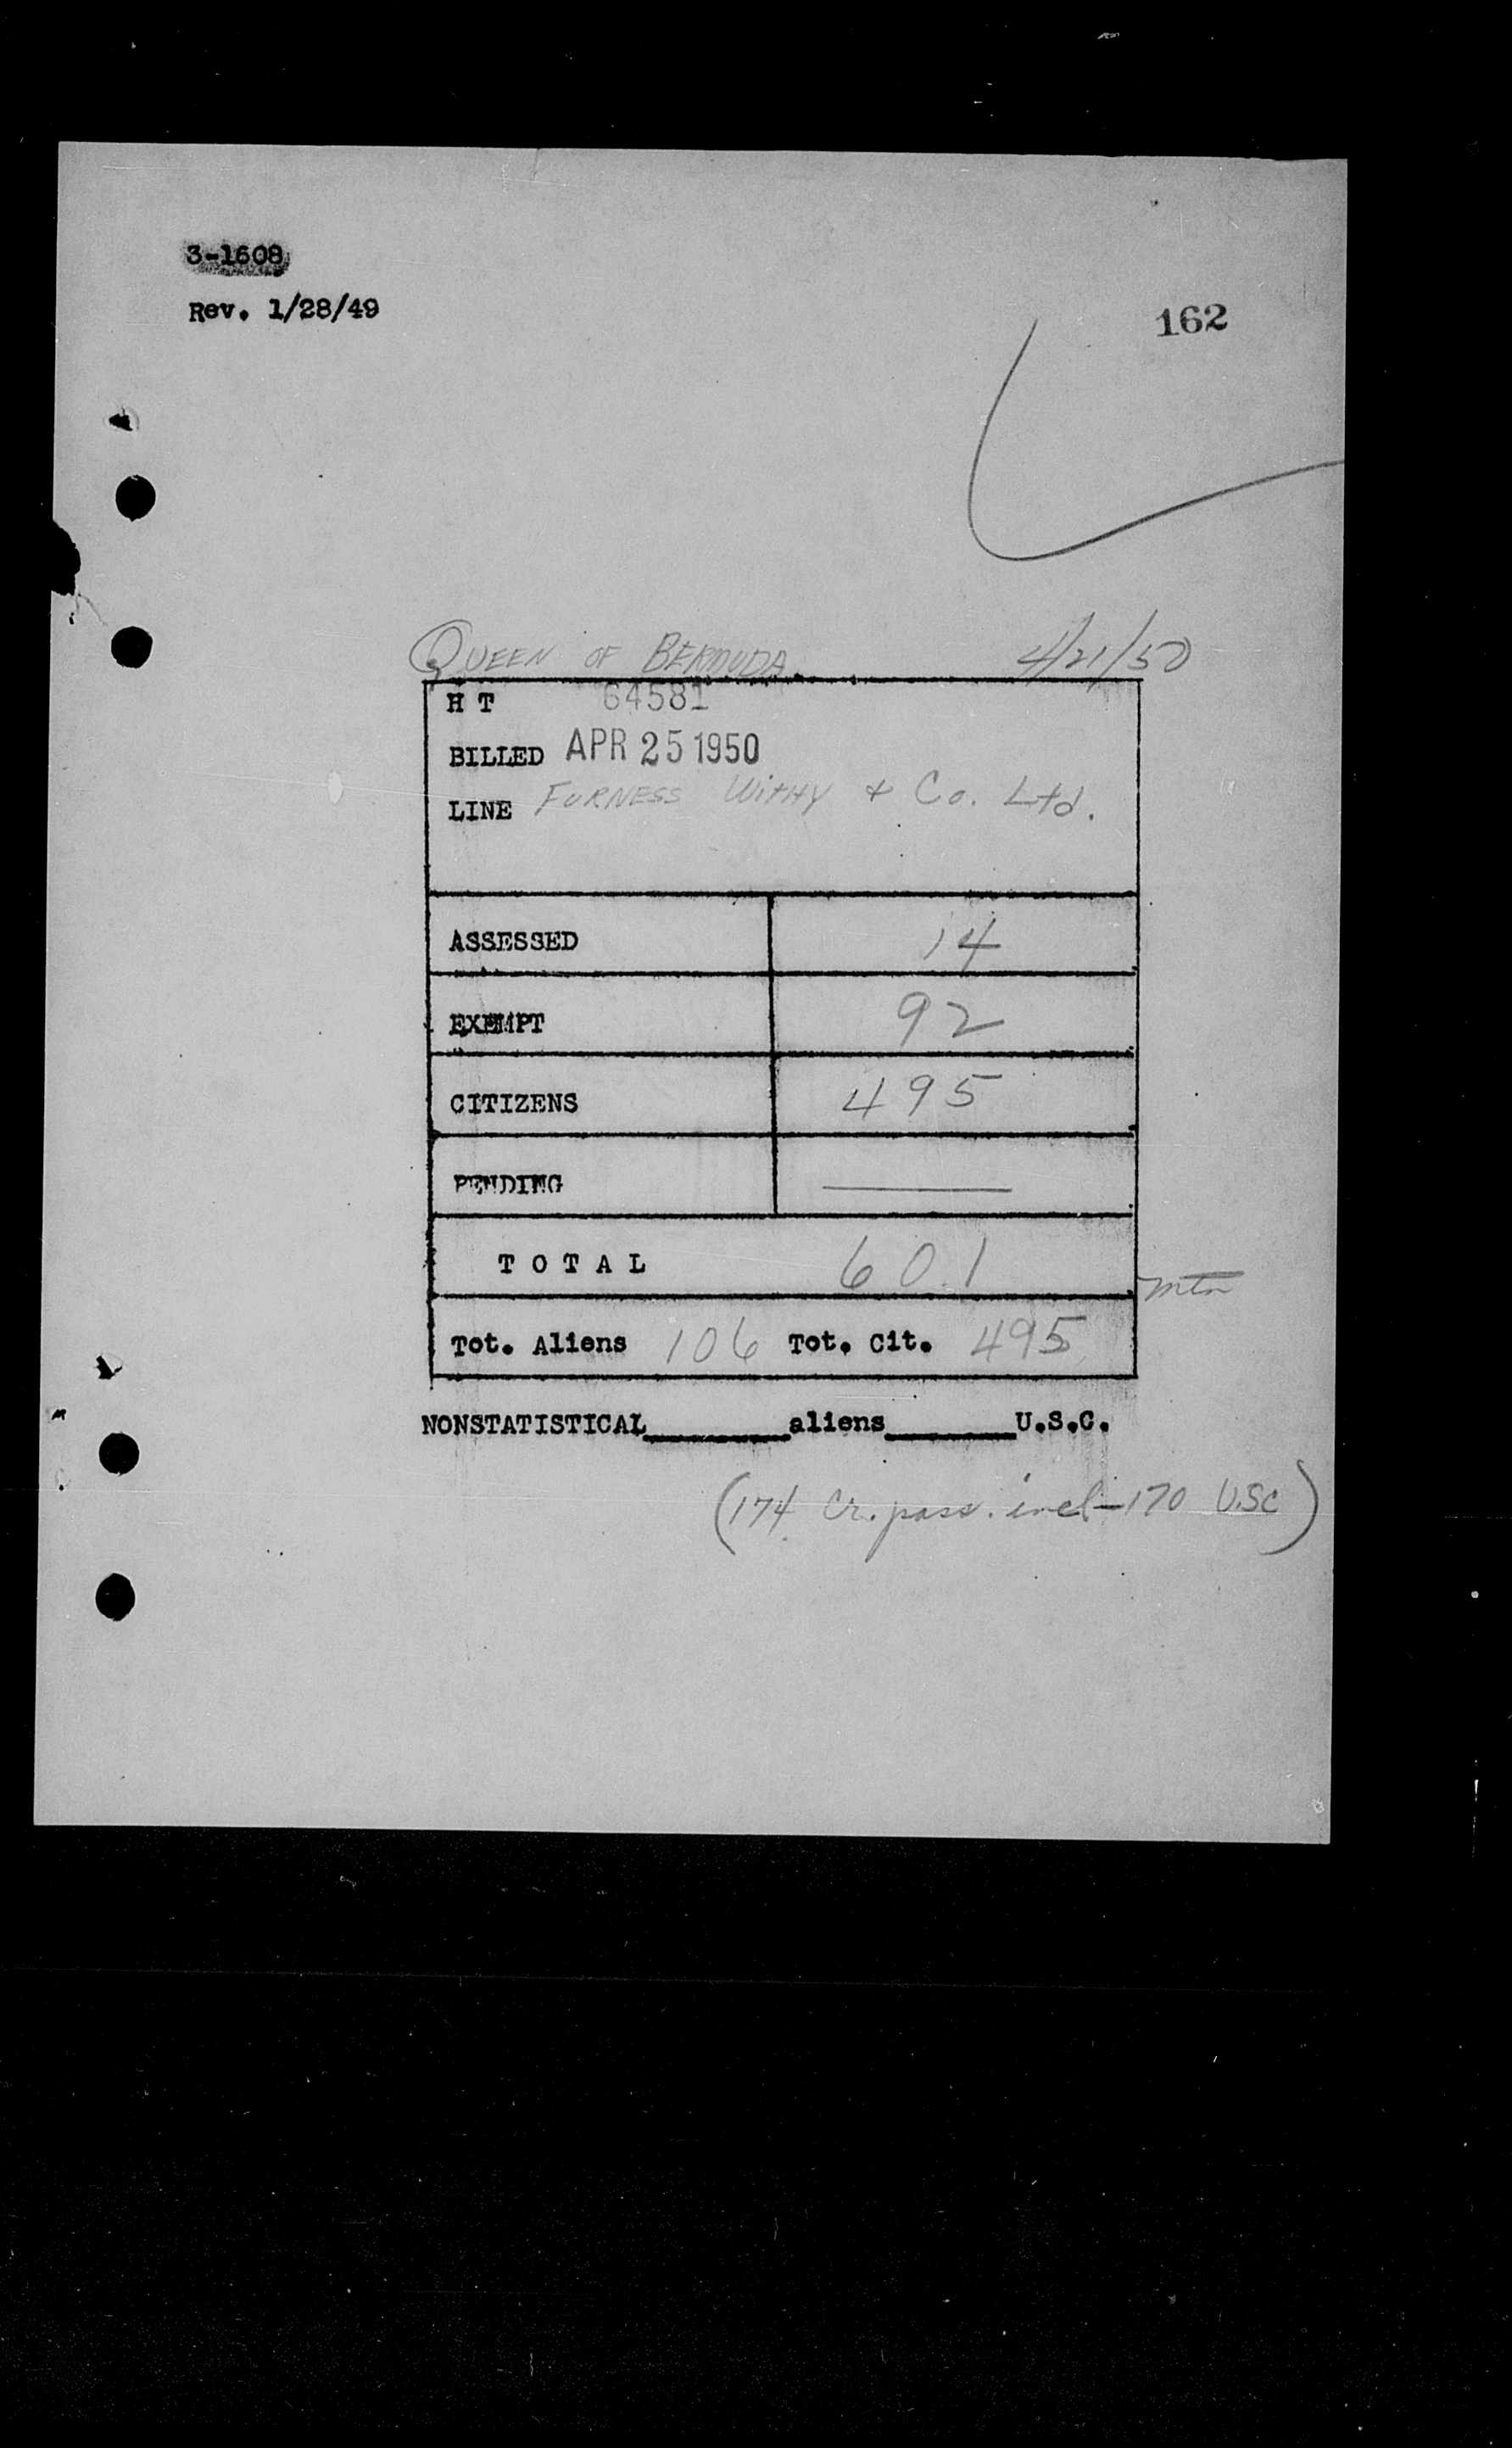 3-1608
Rev. 1/28/49
162
QUEEN OF BERMUDA 4/21/50
H T 64581
BILLED APR 25 1950
LINE FURNESS WITHY & Co. Ltd.
ASSESSED 14
EXEMPT 92
CITIZENS 495
PENDING ——
T O T A L 601
Tot. Aliens 106 Tot. Cit. 495
NONSTATISTICAL________aliens________U.S.C.
(174 Cr. pass. incl—170 USC)